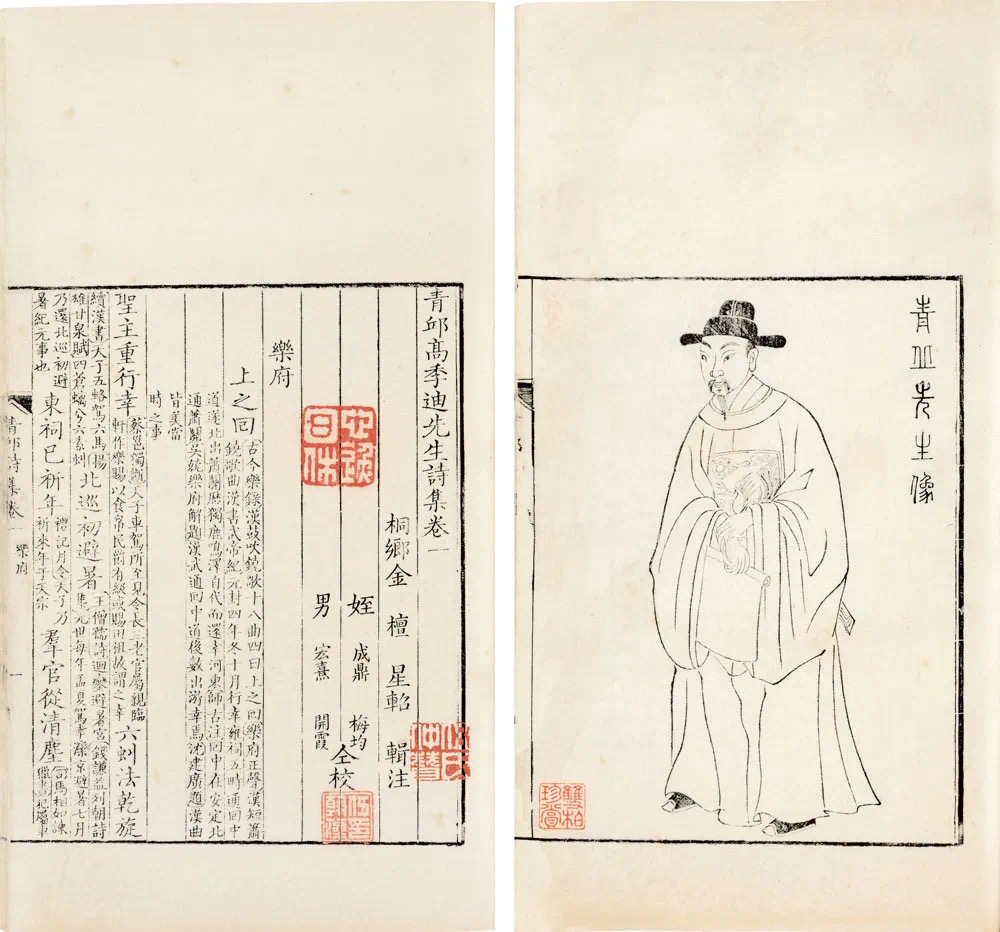 青丘先生像
雙柏
珍賞
青邱高季迪先生詩集卷一
桐鄉金檀星軺輯注
姪成鼎梅均
男宏熹開霞仝校
樂府
上之回古今樂錄漢鼓吹鐃歌十八曲四曰上之回樂府正聲漢短簫
鐃歌曲漢書武帝紀元封四年冬十月行幸雍祠五畤通回中
道遂北出蕭關歷獨鹿鳴澤自代而還幸河東師古注回中在安定北
通蕭關吳兢樂府解題漢武通回中道後數出游幸焉沈建廣題漢曲
皆美當
時之事
聖主重行幸蔡邕獨斷天子車駕所至見令長三老官屬親臨
軒作樂賜以食帛民爵有級或賜田租故謂之幸六虯法乾旋
續漢書天子五輅駕六馬揚
雄甘泉賦四蒼螭兮六素虯北巡初避暑王僧孺詩迴鑾避暑宮錢謙益列朝詩
集元世每年孟夏駕幸灤京避暑七月
乃還北巡初避
暑紀元事也東祠已祈年禮記月令天子乃
祈來年于天宗羣官從清塵司馬相如諫
獵書犯屬車
青邱詩集卷一
樂府
一